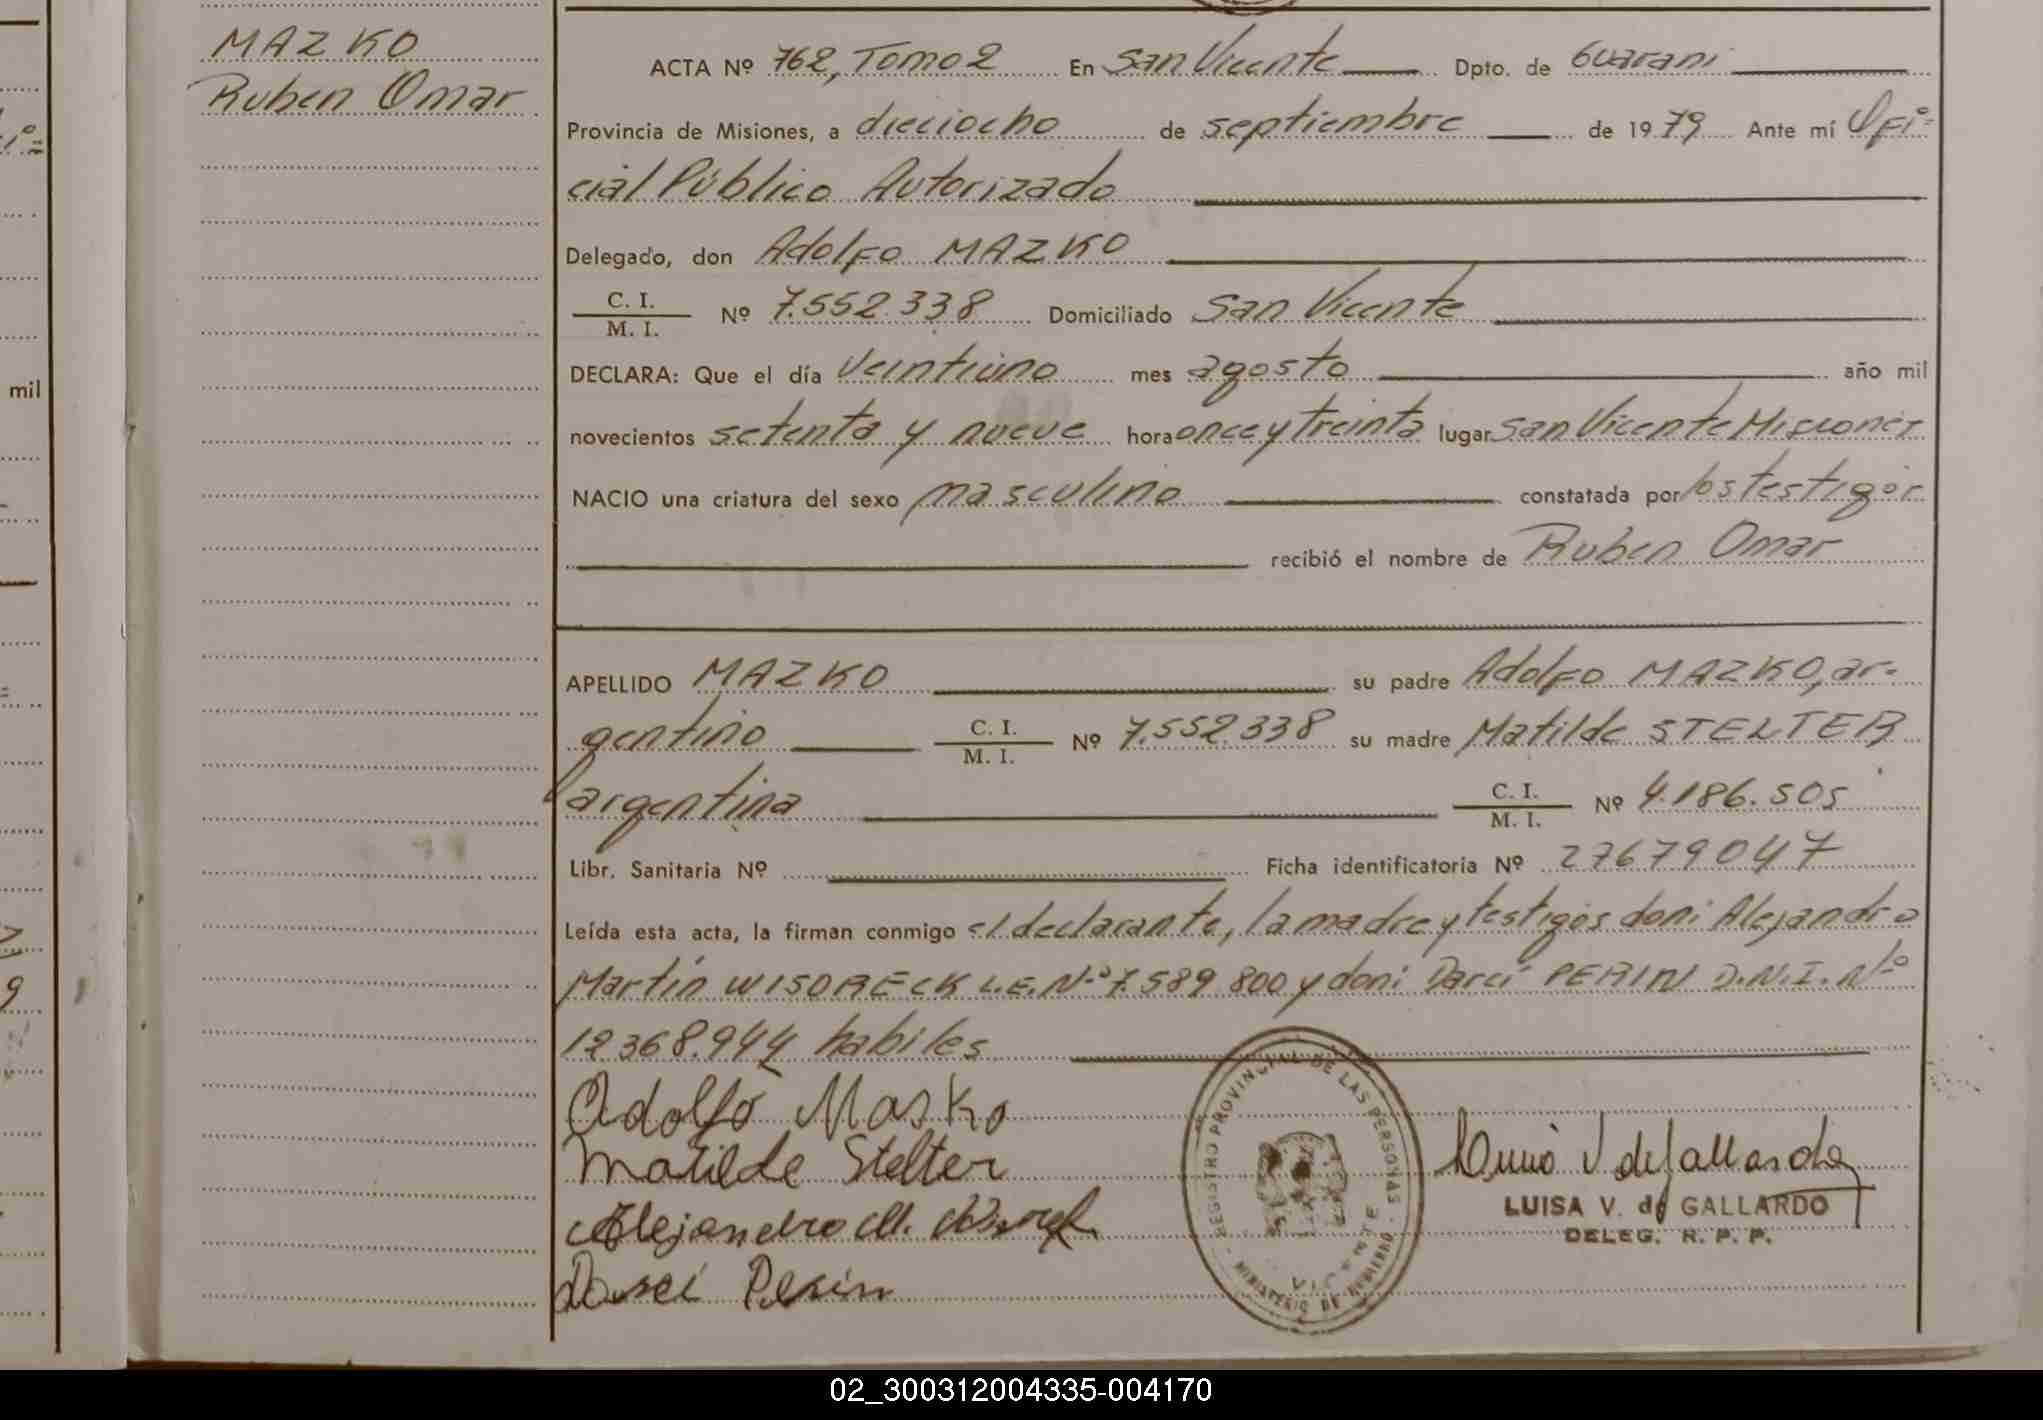 MAZKO
Ruben Omar
mil
9
ACTA Nº 762, Tomo 2 En San Vicente Dpto. de Guarani
Provincia de Misiones, a dieciocho de septiembre de 1979 Ante mí Ofi=
cial Público Autorizado
Delegado, don Adolfo MAZKO
C. I.
M. I.
Nº 7.552.338 Domiciliado San Vicente
DECLARA: Que el día veintiuno mes agosto año mil
novecientos setenta y nueve hora once y treinta lugar San Vicente Misiones
NACIO una criatura del sexo masculino constatada por los testigos
recibió el nombre de Ruben Omar
APELLIDO MAZKO su padre Adolfo MAZKO, ar-
gentino C. I. M. I. Nº 7.552.338 su madre Matilde STELTER
argentina C. I. M. I. Nº 4.186.505
Libr. Sanitaria Nº Ficha identificatoria Nº 27679047
Leída esta acta, la firman conmigo el declarante, la madre y testigos don: Alejandro
Martín WISDRECK L.E. Nº 7.589 800 y don: Darci PERIN D.N.I. Nº
12368.944 habiles
Adolfo Masko
Matilde Stelter
Alejandro M.
Darci Perin
REGISTRO PROVINCIAL DE LAS PERSONAS
MINISTERIO DE GOBIERNO
LUISA V. de GALLARDO
DELEG. R. P. P.
02_300312004335-004170